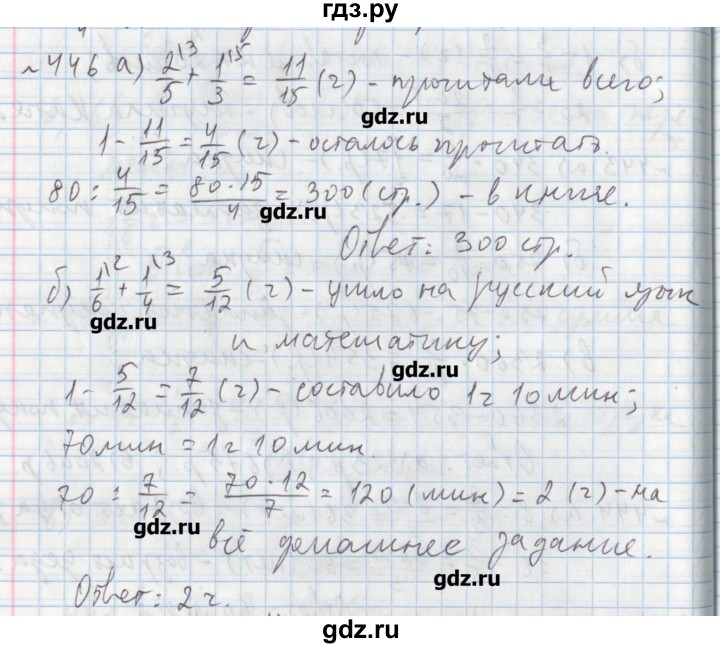 гдз.ру
№ 446 а) 2/5 \3 + 1/3 \5 = 11/15 (ч) - прочитали всего;
gdz.ru
1 - 11/15 = 4/15 (ч) - осталось прочитать.
80 : 4/15 = 80·15/4 = 300 (стр.) - в книге.
gdz.ru
Ответ: 300 стр.
б) 1/6 \2 + 1/4 \3 = 5/12 (ч) - ушло на русский язык
gdz.ru
и математику;
gdz.ru
1 - 5/12 = 7/12 (ч) - составило 1ч 10 мин;
70 мин = 1ч 10 мин.
70 : 7/12 = 70·12/7 = 120 (мин) = 2 (ч) - на
gdz.ru
всё домашнее задание.
gdz.ru
Ответ: 2 ч.
gdz.ru